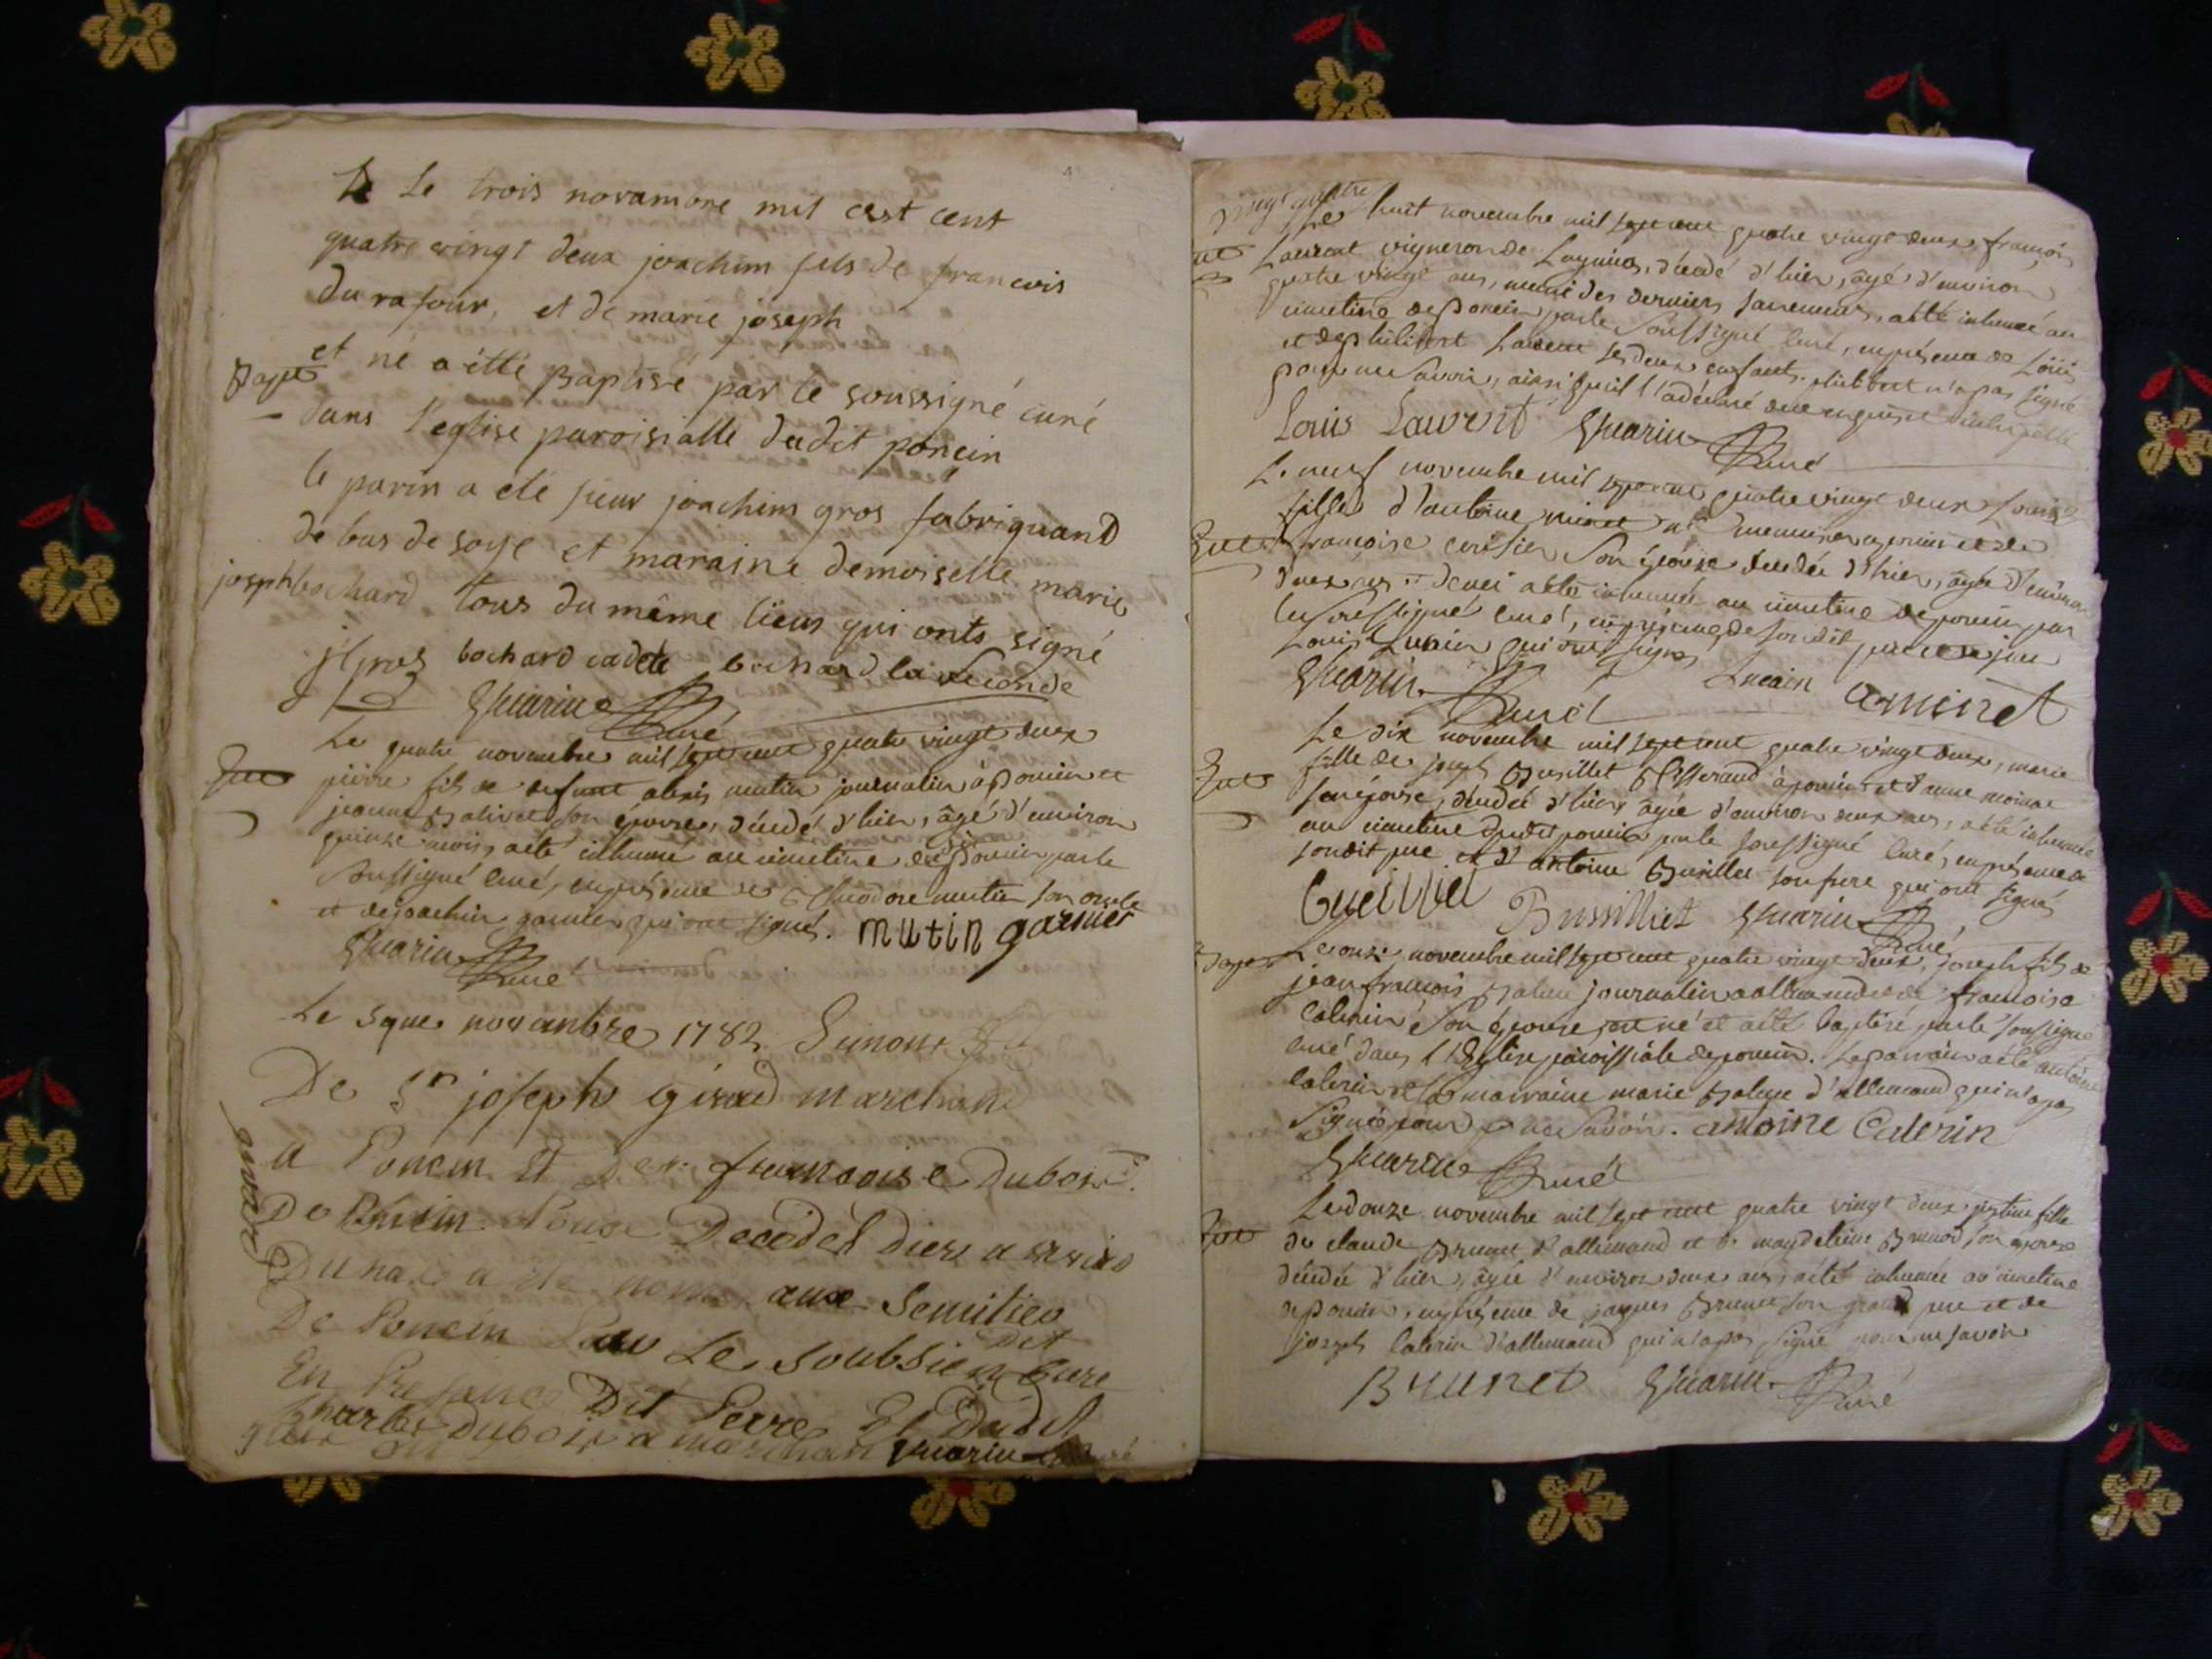 Le trois novambre mil cest cent
quatre vingt deux joachim fils de francois
durafour, et de marie joseph
Bapt et né a étté Baptisé par le soussigné curé
dans l'eglise paroisialle dudit poncin
le parin a été sieur joachim gros fabriquand
de bas de soye et maraine demoiselle marie
joseph bochard tous du même lieus qui onts signé
j gros bochard cadete bochard la seconde
Guarin Curé
Le quatre novembre mil sept cent quatre vingt deux
pierre fils de defunt alexis mutin journalier à poncin et
jeanne son épouse, décédé d'hier, âgé d'environ
quinze mois, a été inhumé au cimetiere de poncin par le
soussigné curé, en présence de Theodore mutin son oncle
et de joachim garnier qui ont signés. mutin garnier
Guarin Curé
Le novanbre 1782 Simont
De Sr joseph girad marchand
a Poncin Et De francoise Dubois
De Poncin Decedét
girad
Du a été aux Semitieo
De Poncin Par Le Soubsien Cure
En Presance Dit Perre Et Dudit
Charles Dubois marchan Guarin Curé
vingt quatre
Le huit novembre mil sept cent quatre vingt deux françois
Laurent vigneron de décédé d'hier, âgé d'environ
quatre vingt ans, muni des derniers sacremens, a été inhumé au
cimetiere de poncin par le soussigné curé, en présence de Louis
et de philibert Laurent ses deux enfants. philibert n'a pas signé
pour ne savoir, ainsi qu'il l'a déclaré de ce requis et interpellé
Louis Laurent Guarin Curé
Le neuf novembre mil sept cent quatre vingt deux
fille d'antoine minet à poncin et de
françoise cerisier son épouse décédée d'hier, âgée d'environ
deux ans a été inhumée au cimetiere de poncin par
le soussigné curé, en présence de son dit pere et de
Louis Lucain qui ont signés
Guarin Curé Lucain a minet
Le dix novembre mil sept cent quatre vingt deux, marie
fille de joseph Busillet à poncin et d'anne moinat
son épouse, décédée d'hier, âgée d'environ deux ans, a été inhumée
au cimetiere dudit poncin par le soussigné curé, en présence de
son dit pere et d'antoine Busillet son frere qui ont signés
Bussillet Guarin Curé
Bapt Le onze novembre mil sept cent quatre vingt deux, joseph fils de
jean françois journalier à allemand et de françoise
caterin son épouse est né et a été baptisé par le soussigné
curé dans l'Eglise paroissiale de poncin. Le parrain a été antoine
caterin et la marraine marie d'allemand qui n'a pas
signé pour ne savoir. antoine Caterin
Guarin Curé
Le douze novembre mil sept cent quatre vingt deux justine fille
de claude Brunet d'allemand et de magdeleine son épouse
décédée d'hier, âgée d'environ deux ans, a été inhumée au cimetiere
de poncin, en présence de jaques Brunet son grand pere et de
joseph caterin d'allemand qui n'a pas signé pour ne savoir
Brunet Guarin Curé